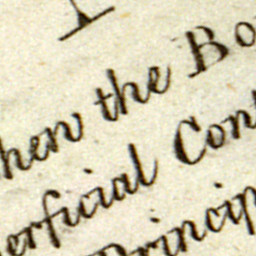 hen the Bo
erficial Con
Princip